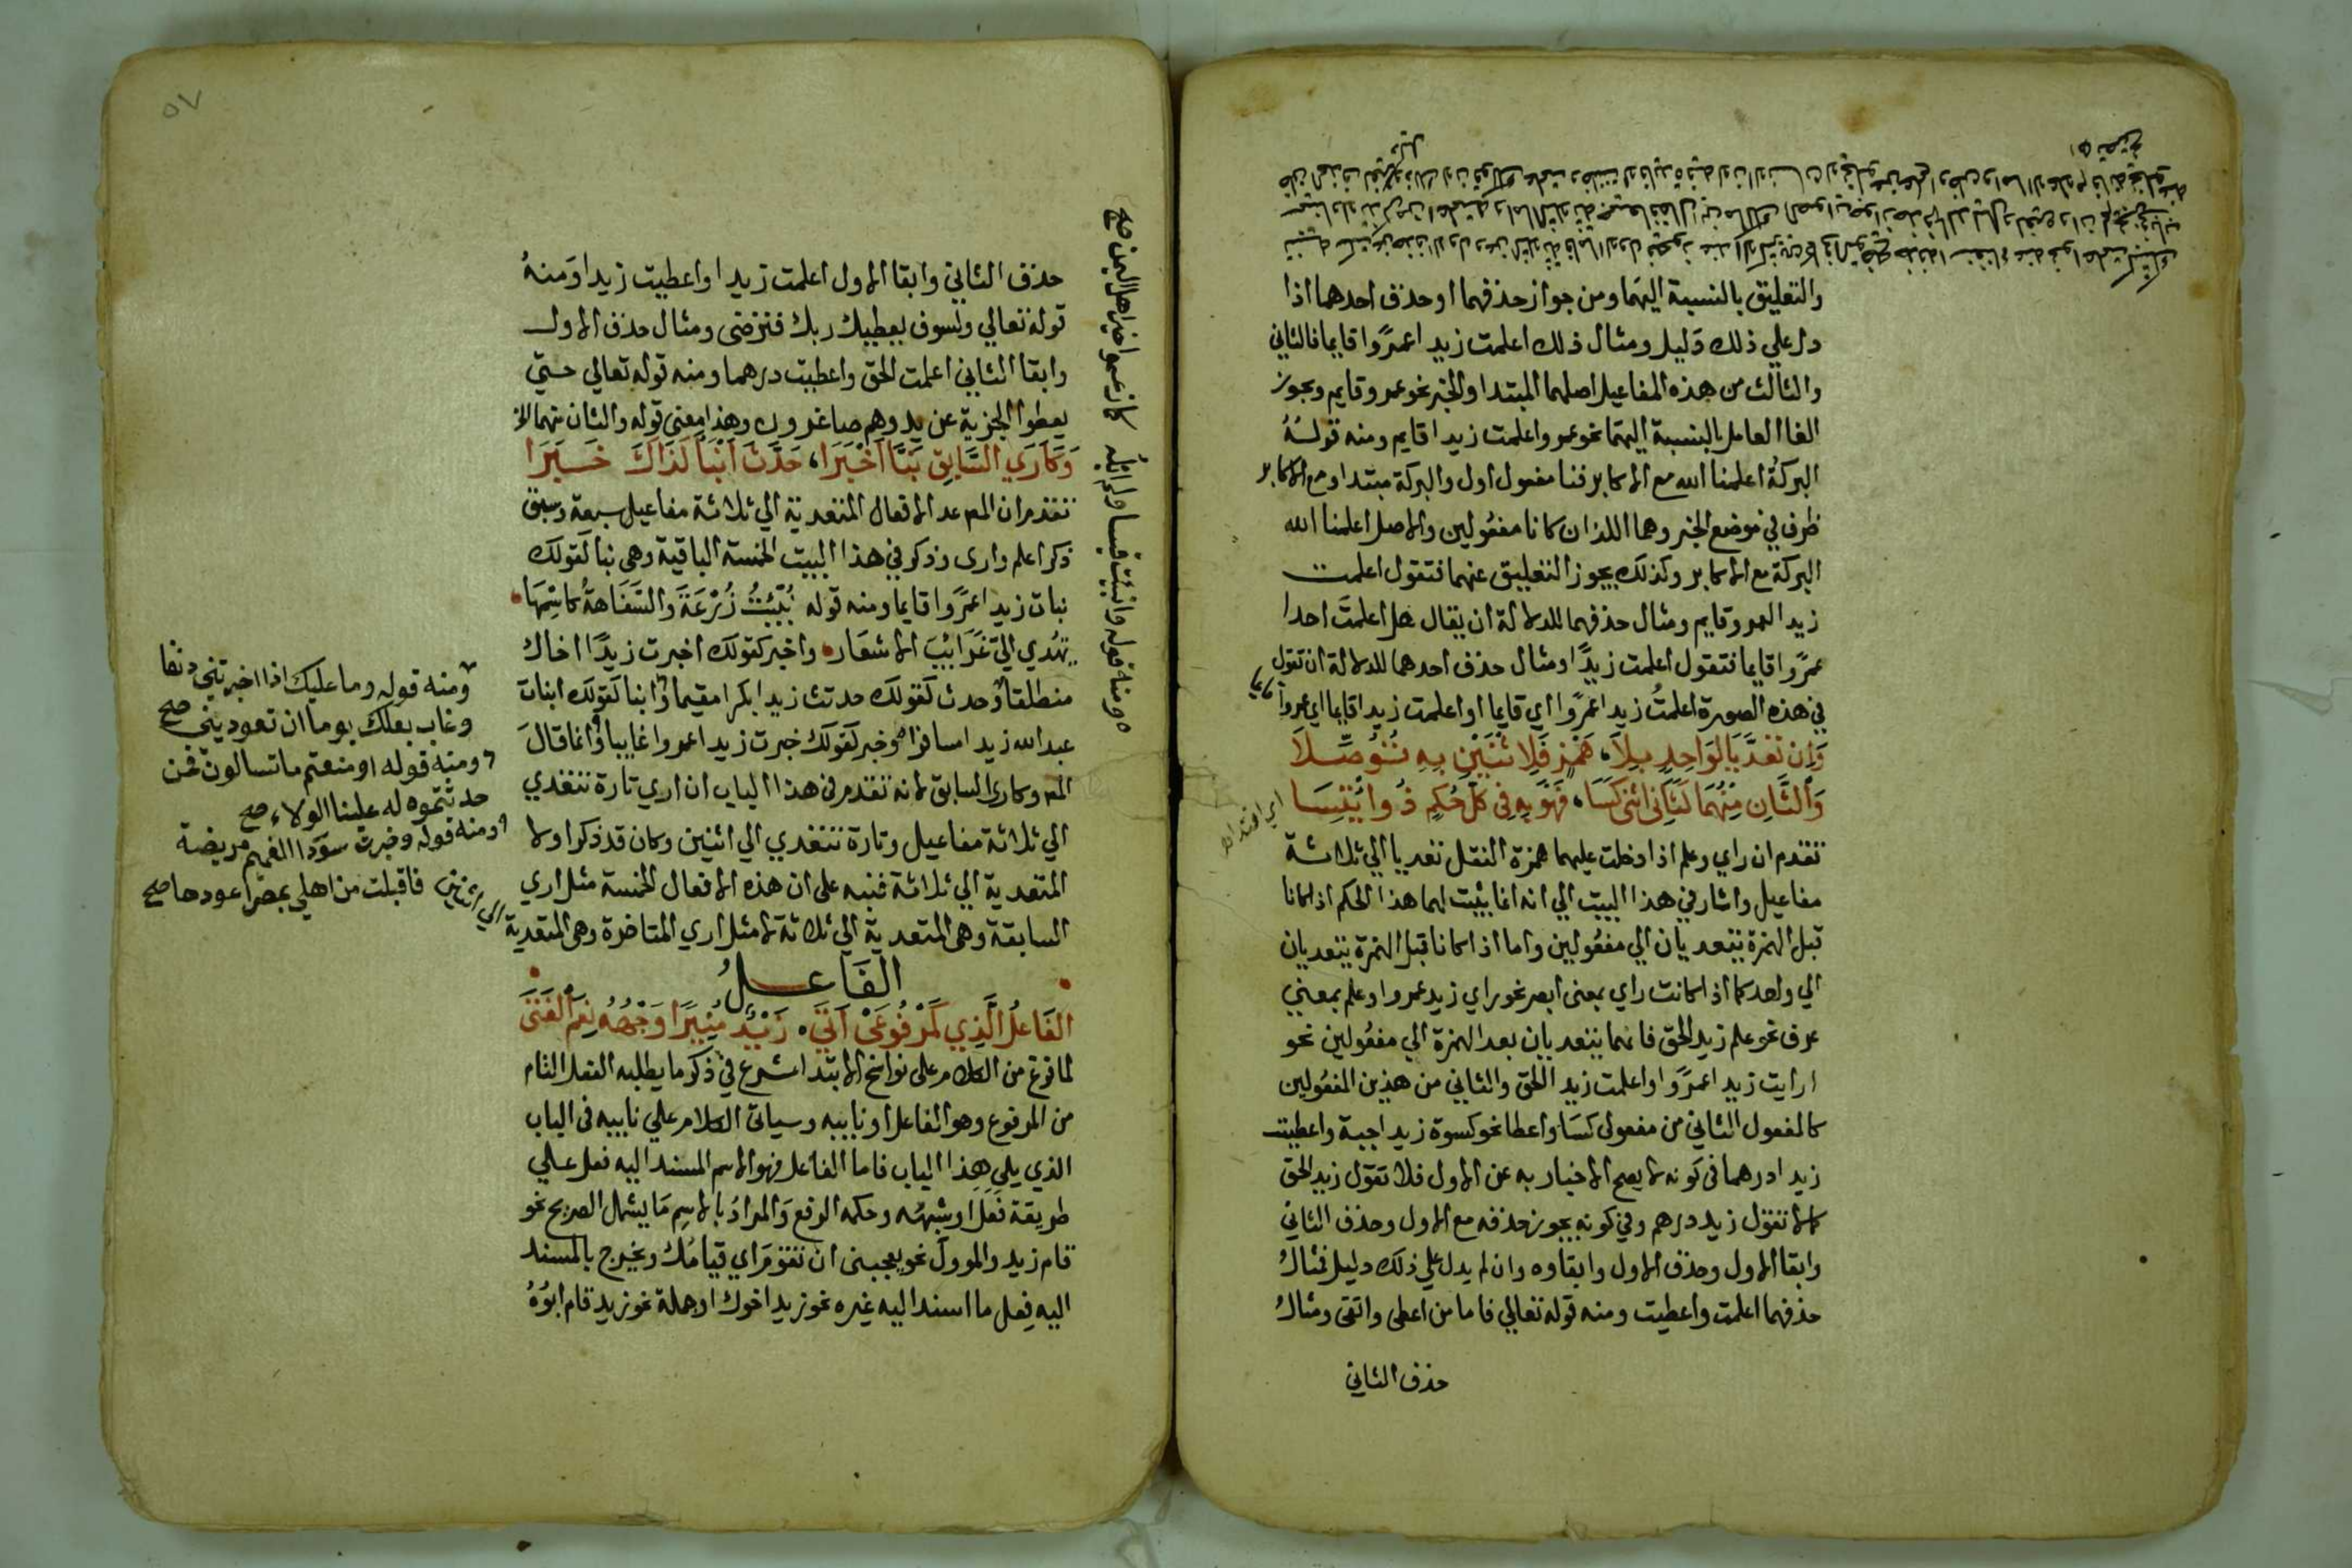 والتعليق بالنسبة اليهما ومن جواز حذفهما او حذف احدهما اذا
دل علي ذلك دليل ومثال ذلك اعلمت زيدا عمرًوا قايما فالثاني
والثالث من هذه المفاعيل اصلهما المبتدا والخبر نحو عمرو قايم ويجوز
الغا العامل بالنسبة اليهما نحو عمرو اعلمت زيدا قايم ومنه قولهُ
البركةُ اعلمنا الله مع الاكابر فنا مفعول اول والبركة مبتدا ومع الاكابر
ظرف في موضع الخبر وهما اللذان كانا مفعُولين والاصل اعلمنا الله
البركة مع الاكابر وكذلك يجوز التعليق عنهما فتقول اعلمت
زيدا لعمرو قايم ومثال حذفهما للدلالة ان يقال هل اعلمتَ احدا
عمرًوا قايما فتقول اعلمت زيدًا ومثال حذف احدهما للدلالة ان تقول
في هذه الصورة اعلمتُ زيدا عمرًوا اي قايما او اعلمت زيدا قايما اي عمروا
وَاِن تعَدَّيَا لِوَاحِدٍ بِلَا، هَمْزٍ فَلِاثْنَيْنِ بِهِ تَوَصَّلَا
وَالثَّانِ مِنْهُمَا كَثَانِي اثْنَي كَسَا، فَهْوَ بِهِ فِي كُلِّ حُكمٍ ذُو ائْتِسَا
اي اقتدا
تقدم ان راي وعلم اذا دخلت عليهما همزة النقل تعديا الي ثلاثة
مفاعيل واشار في هذا البيت الي انه انما يثبت لهما هذا الحكم اذا كانا
قبل الهمزة يتعديان الي مفعُولين واما اذا كانا قبل الهمزة يتعديان
الي واحد كما اذا كانت راي بمعنى ابصر نحو راي زيد عمروا وعلم بمعني
عرف نحو علم زيد الحق فانهما يتعديان بعد الهمزة الي مفعُولين نحو
ارايت زيدا عمرًوا واعلمت زيدا الحق والثاني من هذين المفعُولين
كالمفعول الثاني من مفعولى كسَا واعطا نحو كسوة زيدا جبة واعطيت
زيدا درهما فى كونه لا يصح الاخبار به عن الاول فلا تقول زيد الحق
كما لا تقول زيد درهم وفي كونه يجوز حذفه مع الاول وحذف الثاني
وابقا الاول وحذف الاول وابقاوه وان لم يدل علي ذلك دليل فمثالُ
حذفهما اعلمت واعطيت ومنه قوله تعالي فاما من اعطى واتقى ومثالُ
حذف الثاني
٥٧
حذف الثاني وابقا الاول اعلمت زيدا واعطيت زيدا ومنهُ
قوله تعالي ولسوف يعطيك ربك فترضى ومثال حذف الاول
وابقا الثاني اعلمت الحق واعطيت درهما ومنه قوله تعالي حتي
يعطوا الجزية عن يد وهم صاغرون وهذا معنى قوله والثان منهما الخ
وَكَأَرَي السَّابِقِ نَبَّا اَخْبَرَا، حَدَّثَ اَنْبَاَ كَذَاكَ خَبَّرَا
تقدم ان المص عد الافعال المتعدية الي ثلاثة مفاعيل سبعة وسبق
ذكر اعلم وارى وذكر في هذا البيت الخمسة الباقية وهى نبا كقولك
نبات زيدا عمرًوا قايما ومنه قوله نُبِّئتُ زُرْعَةَ وَالسَّفَاهَةُ كَاسْمِهَا
يُهْدي الَيّ غَرَائِبَ الاشعَار واخبر كقولك اخبرت زيدًا اخاك
منطلقا وحدث كقولك حدثت زيدا بكرا مقيما وانبا كقولك انبات
عبد الله زيدا مسافرا وخبر كقولك خبرت زيدا عمروا غايبا وانما قالَ
المص وكارى السابق لانه تقدم في هذا الباب ان اري تارة تتعدي
الي ثلاثة مفاعيل وتارة تتعدي الي اثنين وكان قد ذكر اولا
المتعدية الي ثلاثة فنبه على ان هذه الافعال الخمسة مثل اري
السابقة وهى المتعدية الي ثلاثة لا مثل اري المتاخرة وهى المتعدية
الي اثنين
الفَاعـــلُ
الفَاعلُ الَّذِي كَمَرْفُوعَى اَتَي، زَيْدٌ مُنِيرًا وَجْهُهُ نِعْمَ الْفَتَىَ
لما فرغ من الكلام على نواسخ الابتدا شرع في ذكر ما يطلبه الفعل التام
من المرفوع وهو الفاعل او نايبه وسياتى الكلام علي نايبه فى الباب
الذي يلي هذا الباب فاما الفاعل فهو الاسم المسند اليه فعل علي
طريقة فَعَلَ او شبهُه وحكمه الرفع وَالمرادُ بالاسمِ مَا يشمل الصريح نحو
قام زيد والموول نحو يعجبنى ان تقومَ اي قيامُك ويخرج بالمسند
اليه فعل ما اسند اليه غيره نحو زيد اخوك او جملة نحو زيد قام ابوُهُ
ومنه قوله وانبئت قيسا ولم ابلُه كما زعموا خير اهل اليمن صح
ومنه قوله وما عليك اذا اخبرتني دنفا
وغاب بعلك يوما ان تعوديني صح
ومنه قوله او منعتم ما تسالون فمن
حدثتموه له علينا الولاء صح
ومنه قوله وخبرت سوَدا الغميم مريضة
فاقبلت من اهلي بمصر اعودها صح